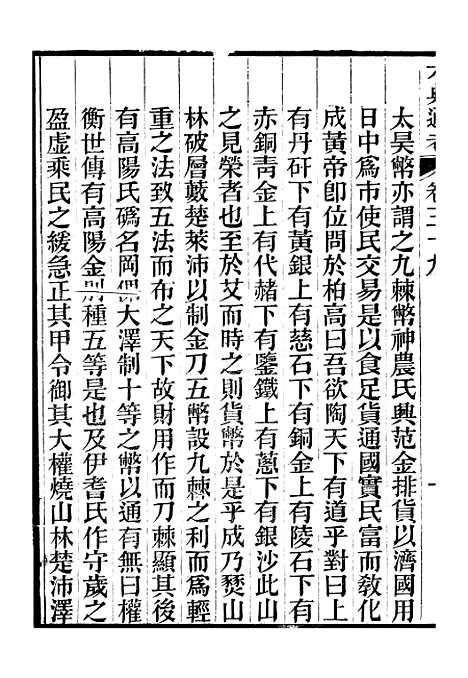 卷三十九
太昊幣亦謂之九棘幣神農氏興范金排貨以濟國用
日中爲市使民交易是以食足貨通國實民富而敎化
成黃帝卽位問於柏高曰吾欲陶天下有道乎對曰上
有丹矸下有黃銀上有慈石下有銅金上有陵石下有
赤銅靑金上有代赭下有鑒鐵上有蔥下有銀沙此山
之見榮者也至於艾而時之則貨幣於是乎成乃燹山
林破層藪楚萊沛以制金刀五幣設九棘之利而爲輕
重之法致五法而布之天下故財用作而刀棘顯其後
有高陽氏碼名岡偶大澤制十等之幣以通有無曰權
衡世傳有高陽金則種五等是也及伊耆氏作守歲之
盈虛乘民之緩急正其甲令御其大權燒山林楚沛澤